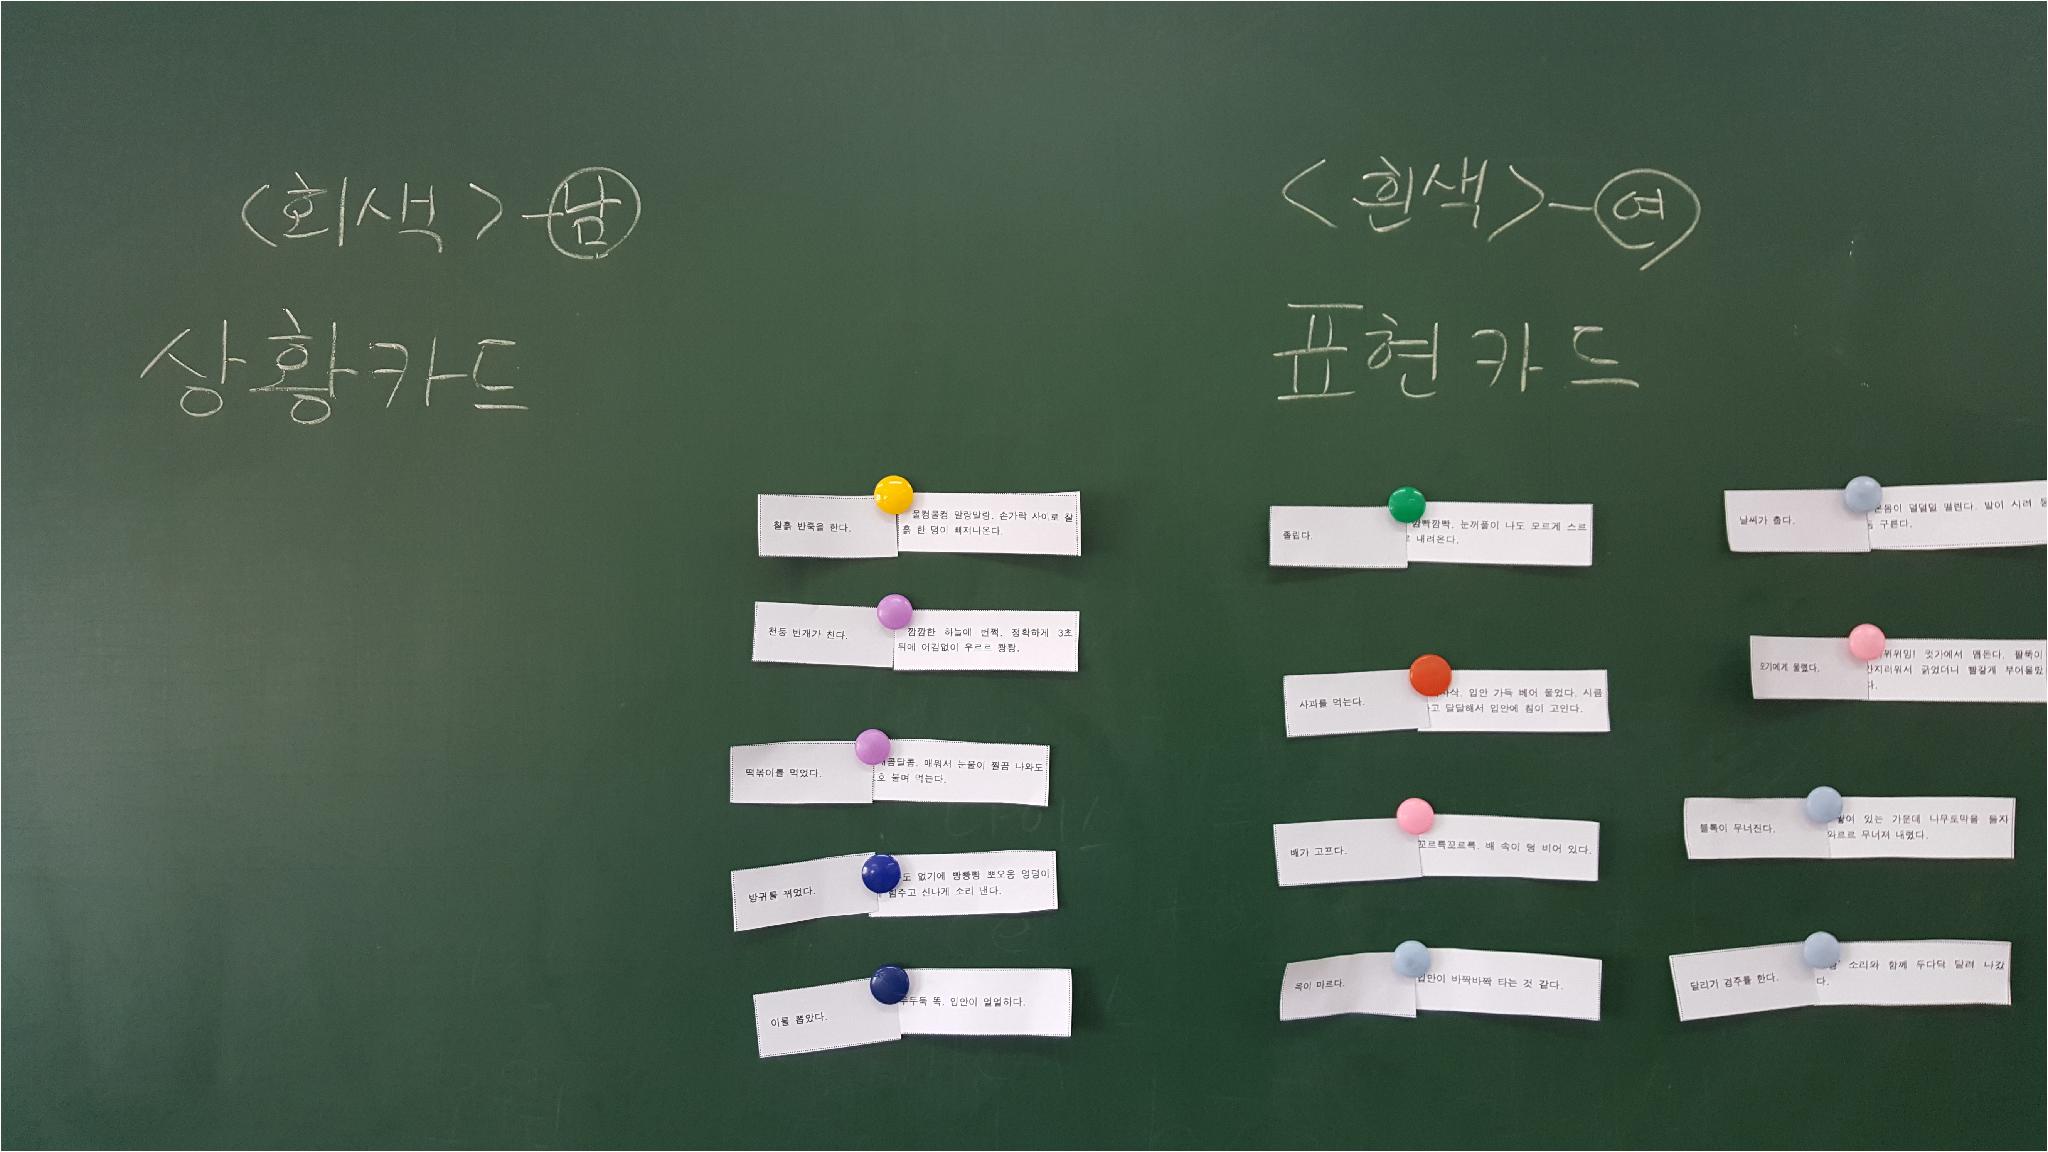 <회색> - 남
상황카드
<흰색> - 여
표현카드
찰흙 반죽을 한다.
물컹물컹 말랑말랑. 손가락 사이로 찰
흙 한 덩이 빠져나온다.
천둥 번개가 친다.
깜깜한 하늘에 번쩍. 정확하게 3초
뒤에 어김없이 우르르 쾅쾅.
떡볶이를 먹었다.
매워서 눈물이 찔끔 나와도
호 불며 먹는다.
방귀를 뀌었다.
없기에 빵빵빵 뽀오옹 엉덩이
힘주고 신나게 소리 낸다.
이를 뽑았다.
똑. 입안이 얼얼하다.
졸립다.
깜빡깜빡. 눈꺼풀이 나도 모르게 스르
르 내려온다.
사과를 먹는다.
입안 가득 베어 물었다. 시큼
하고 달달해서 입안에 침이 고인다.
배가 고프다.
꼬르륵꼬르륵. 배 속이 텅 비어 있다.
목이 마르다.
입안이 바짝바짝 타는 것 같다.
날씨가 춥다.
온몸이 덜덜덜 떨린다. 발이 시려
구른다.
모기에게 물렸다.
귓가에서 맴돈다. 팔뚝이
간지러워서 긁었더니 빨갛게 부어올랐
다.
블록이 무너진다.
있는 가운데 나무토막을 들자
와르르 무너져 내렸다.
달리기 경주를 한다.
소리와 함께 후다닥 달려 나갔
다.